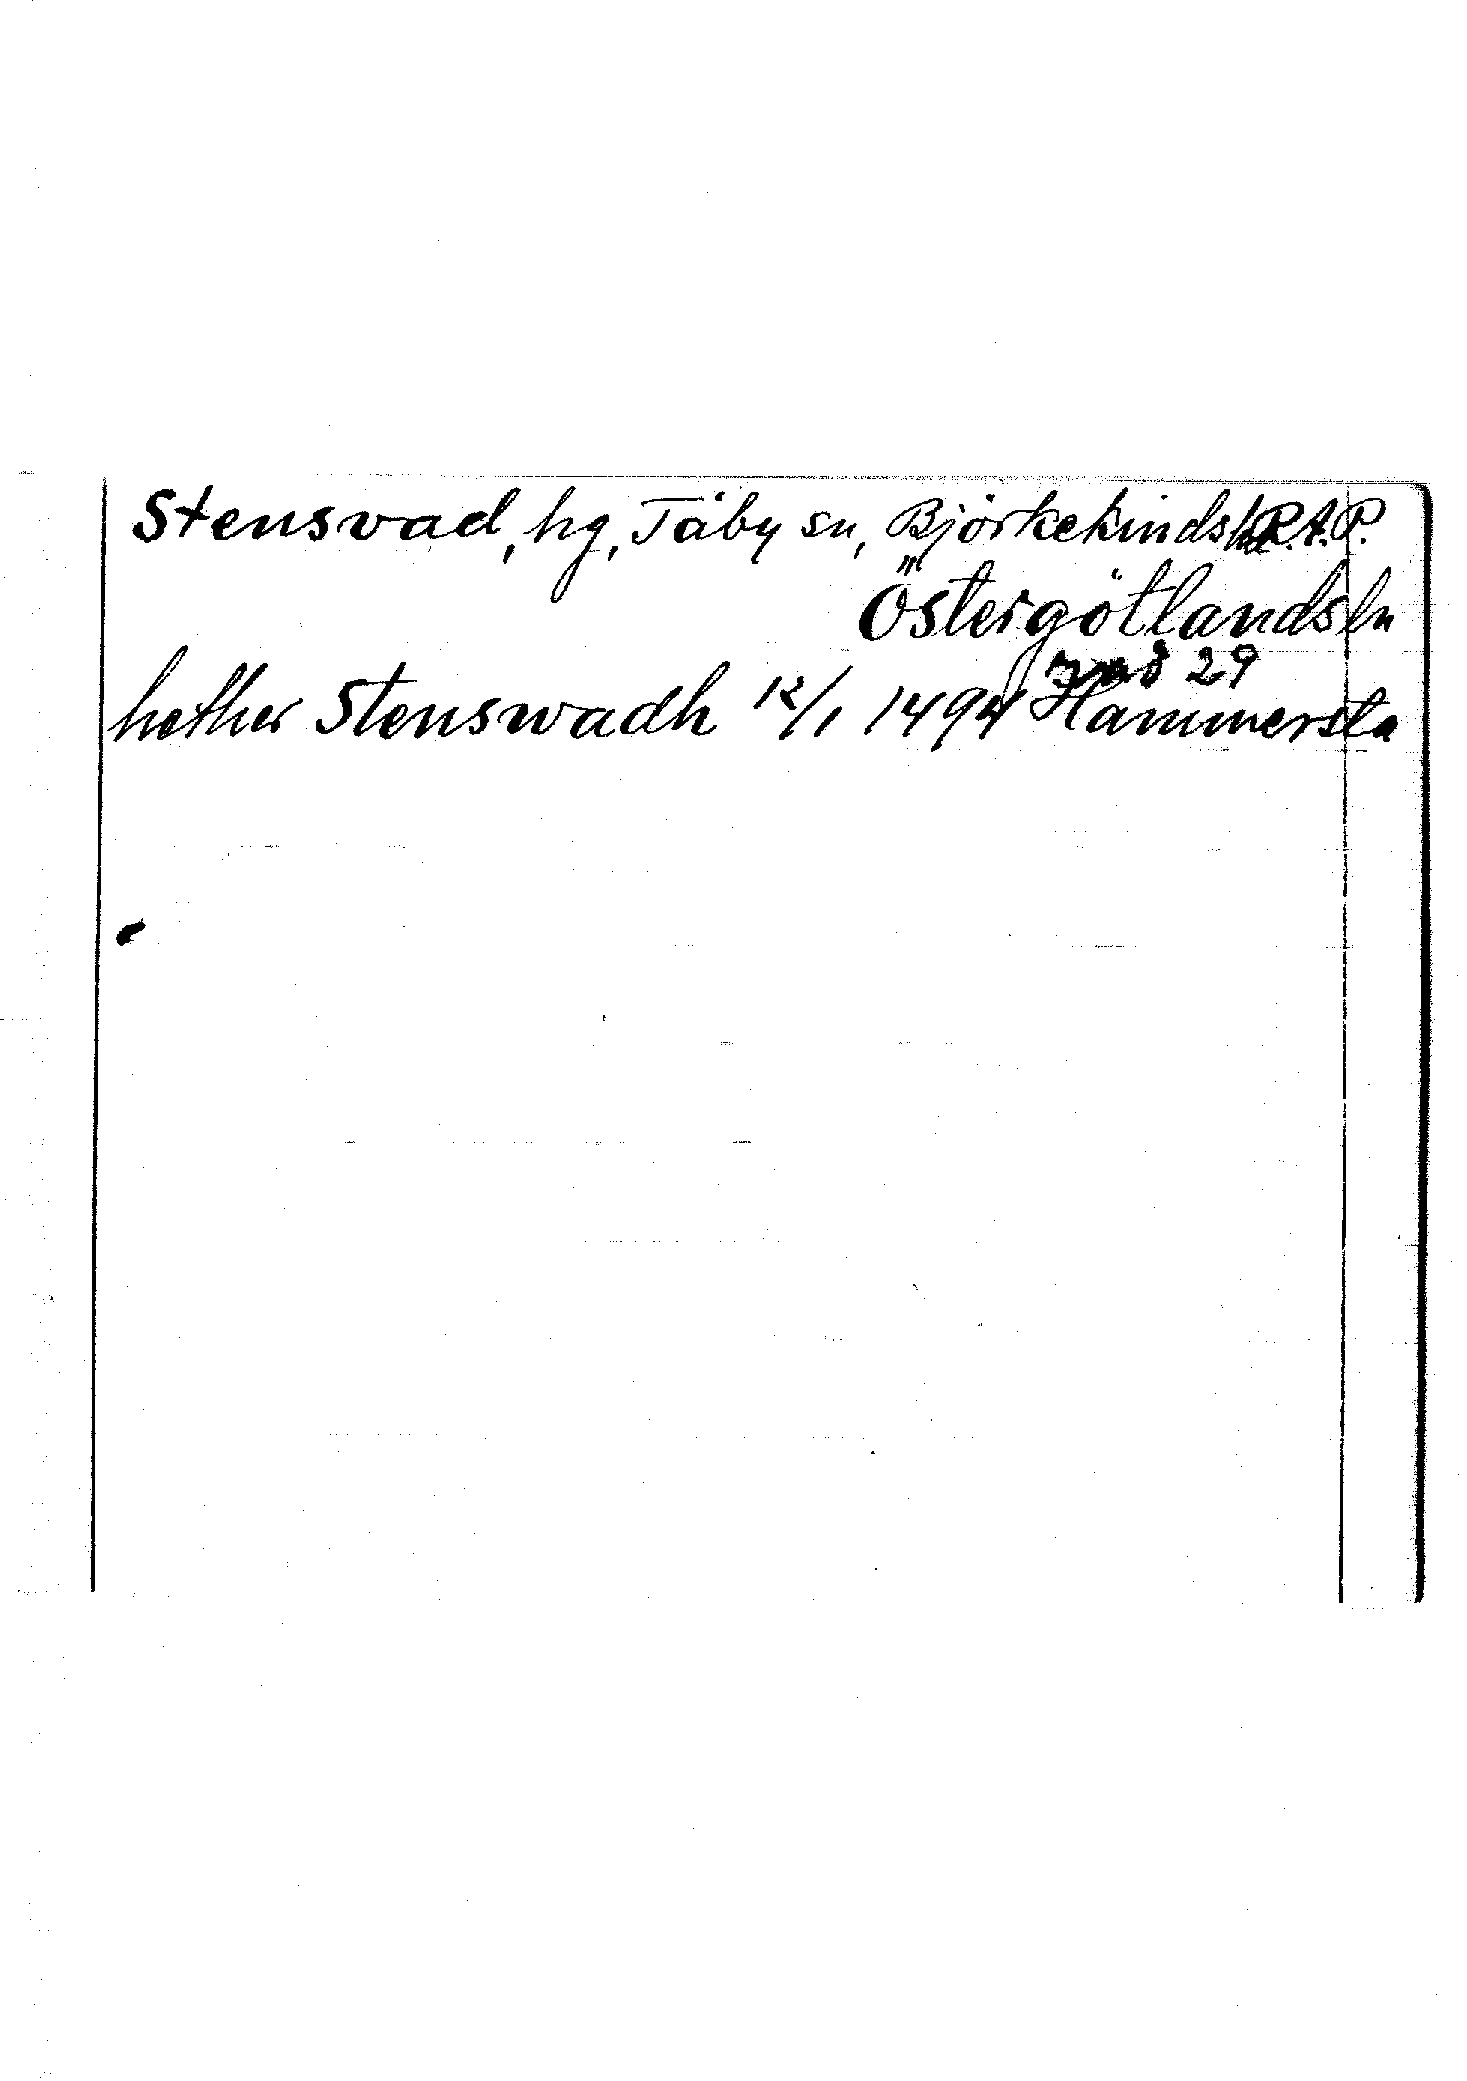 Stensvad, hg, Täby sn, Björkekinds hd R.A.P.
Östergötlands ln
29
hether Stenswadh 12/1 1494 Hammersta